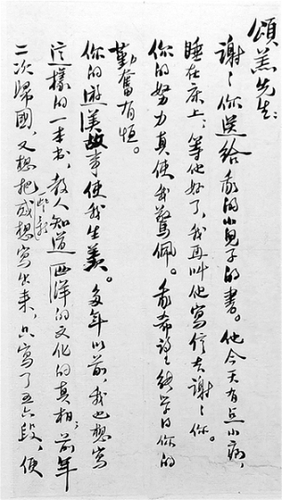 頌羔先生:
謝〻你送給我的小兒子的書。他今天有点小病,
睡在床上;等他好了,我再叫他寫信去謝〻你。
你的努力真使我驚佩。我希望能學得你的
勤奮有恒。
你的遊美故事使我生羨。多年以前,我也想寫
這樣的一本书,教人知道西洋的文化的真相;前年
二次歸國,又想把感想寫出来,只寫了五六段,便